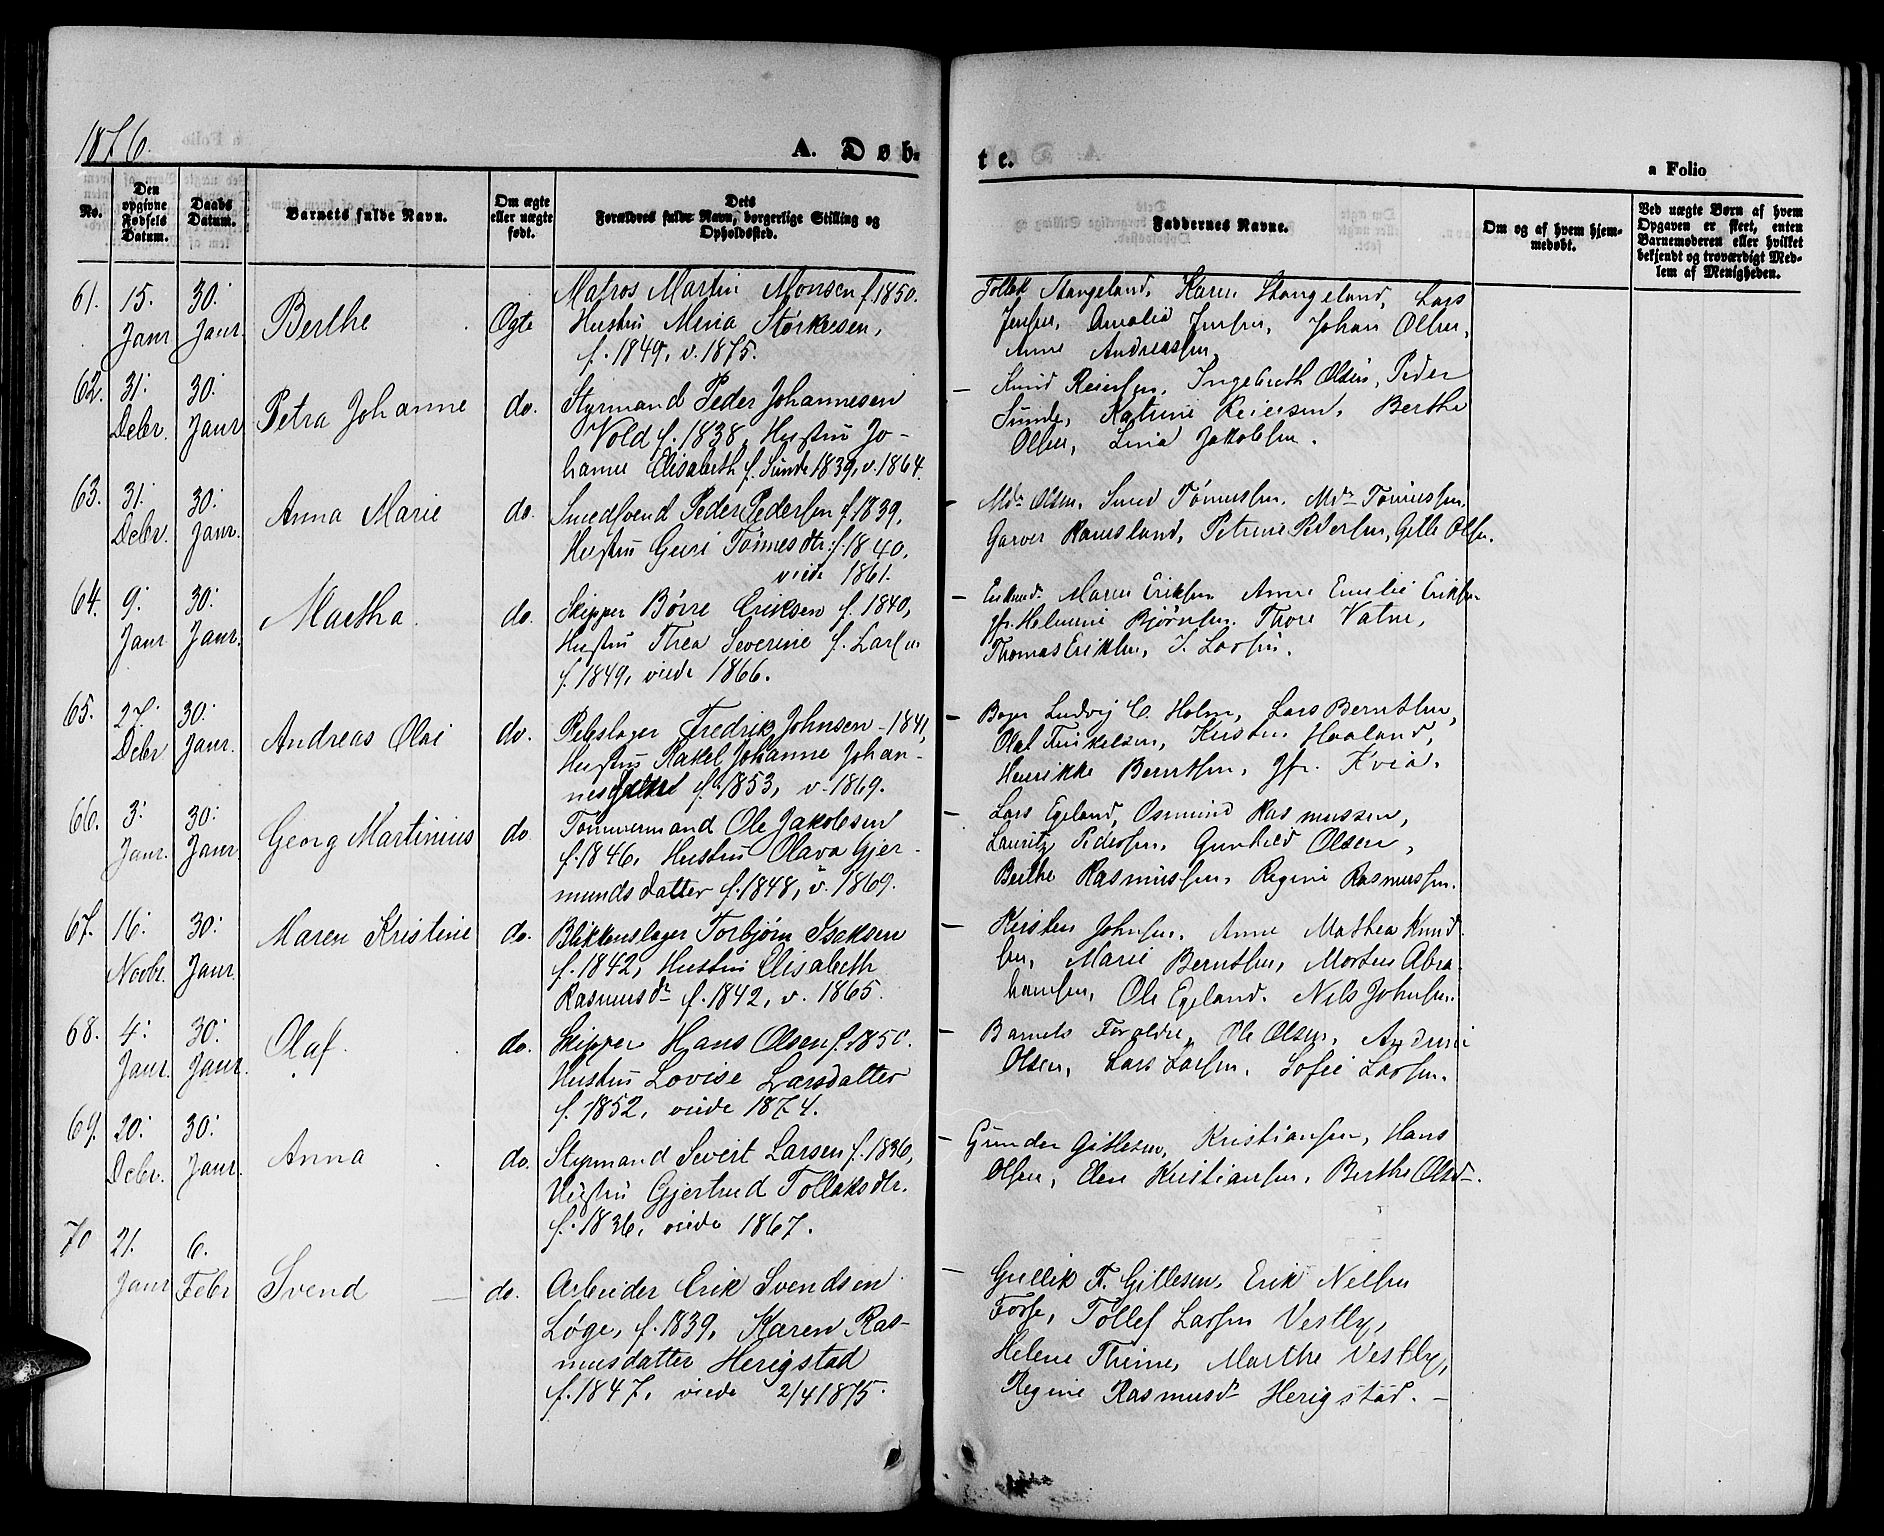 1876.
A. Døb-
te.
a Folio
No.
Den opgivne Fødsels Datum.
Daabs Datum.
Barnets fulde Navn.
Om ægte eller uægte født.
Dets Forældres fulde Navn, borgerlige Stilling og Opholdssted.
Faddernes Navne.
Om og af hvem hjemmedøbt.
Ved uægte Børn af hvem Opgaven er skeet, enten Barnemoderen eller hvilket bekjendt og troværdigt Medlem af Menigheden.
61. 15. Janr 30. Janr. Berthe Ægte
Matros Martin Monsen f. 1850.
Hustru Meria Størkesen,
f. 1849, v. 1875.
Stangeland, Karen Stangeland, Lars
Jensen, Amalia Jensen, Johan Olsen,
Anne Andreassen,
62. 31. Debr. 30. Janr Petra Johanne do.
Styrmand Peder Johannesen
Vold f. 1838, Hustru Jo-
hanne Elisabeth f. Sunde 1839, v. 1864.
— Knud Reiersen, Ingebreth Olsen, Peder
Sunde, Katrine Reiersen, Berthe
Olsen, Lina Jakobsen.
63. 31. Debr. 30. Janr. Anna Marie do.
Smedsvend Peder Pedersen f. 1839,
Hustru Guri Tønnesdtr. f. 1840,
viede 1861.
— Md. Olsen, Smed Tønnessen, Md. Tønnessen,
Garver Ramsland, Petrine Pedersen, Olsen.
64. 9. Janr 30. Janr. Martha do.
Skipper Børre Eriksen f. 1840,
Hustru Thea Severine f. Larsen
f. 1849, viede 1866.
— Maren Eriksen Anne Emilie Eriksen
jfr. Helmine Bjørnsen, Thore Vatne,
Thomas Eriksen, Larsen.
65. 27. Debr 30. Janr. Andreas Olai do.
Rebslager Fredrik Johnsen 1841,
Hustru Rakel Johanne Johan-
nes f. 1853, v. 1869.
— Ludvig C. Holm, Lars Berntsen,
Olaf Terkelsen, Kirsten Haaland,
Henrikke Berntsen, jfr. Kvia.
66. 3. Janr. 30. Janr. Georg Martinius do.
Tømmermand Ole Jakobsen
f. 1846, Hustru Olava Gjer-
mundsdatter f. 1848, v. 1869.
— Lars Egeland, Osmund Rasmussen,
Lauritz Pedersen, Gunhild Olsen,
Berthe Rasmussen, Regine Rasmussen.
67. 16. Novbr. 30. Janr. Maren Kristine do.
Blikkenslager Torbjørn Isaksen
f. 1842, Hustru Elisabeth
Rasmusdr f. 1842, v. 1865.
— Kirsten Johnsen, Anne Mathea Knud-
sen, Marie Berntsen, Morten Abra-
hamsen, Ole Egeland, Nils Johnsen.
68. 4. Janr. 30. Janr. Olaf. do.
Skipper Hans Olsen f. 1850.
Hustru Lovise Larsdatter
f. 1852, viede 1874.
— Barnets Forældre, Ole Olsen, Andrine
Olsen, Lars Larsen, Sofie Larsen.
69. 20. Debr. 30. Janr. Anna do.
Styrmand Sivert Larsen f. 1836,
Hustru Gjertrud Tollaksdtr.
f. 1836, viede 1867.
— Gunder Gitlesen, Kristiansen, Hans
Olsen, Elen Kristiansen, Berthe Olsd.
70 21. Janr 6. Febr Svend — do.
Arbeider Erik Svendsen
Løge, f. 1839, Karen Ras-
musdatter Herigstad
f. 1847, viede 2/4 1875.
— Gullik T. Gitlesen, Erik Nelsen
Fosse, Tollef Larsen Vestly,
Helene Thime, Marthe Vestly,
Regine Rasmusdr Herigstad. —